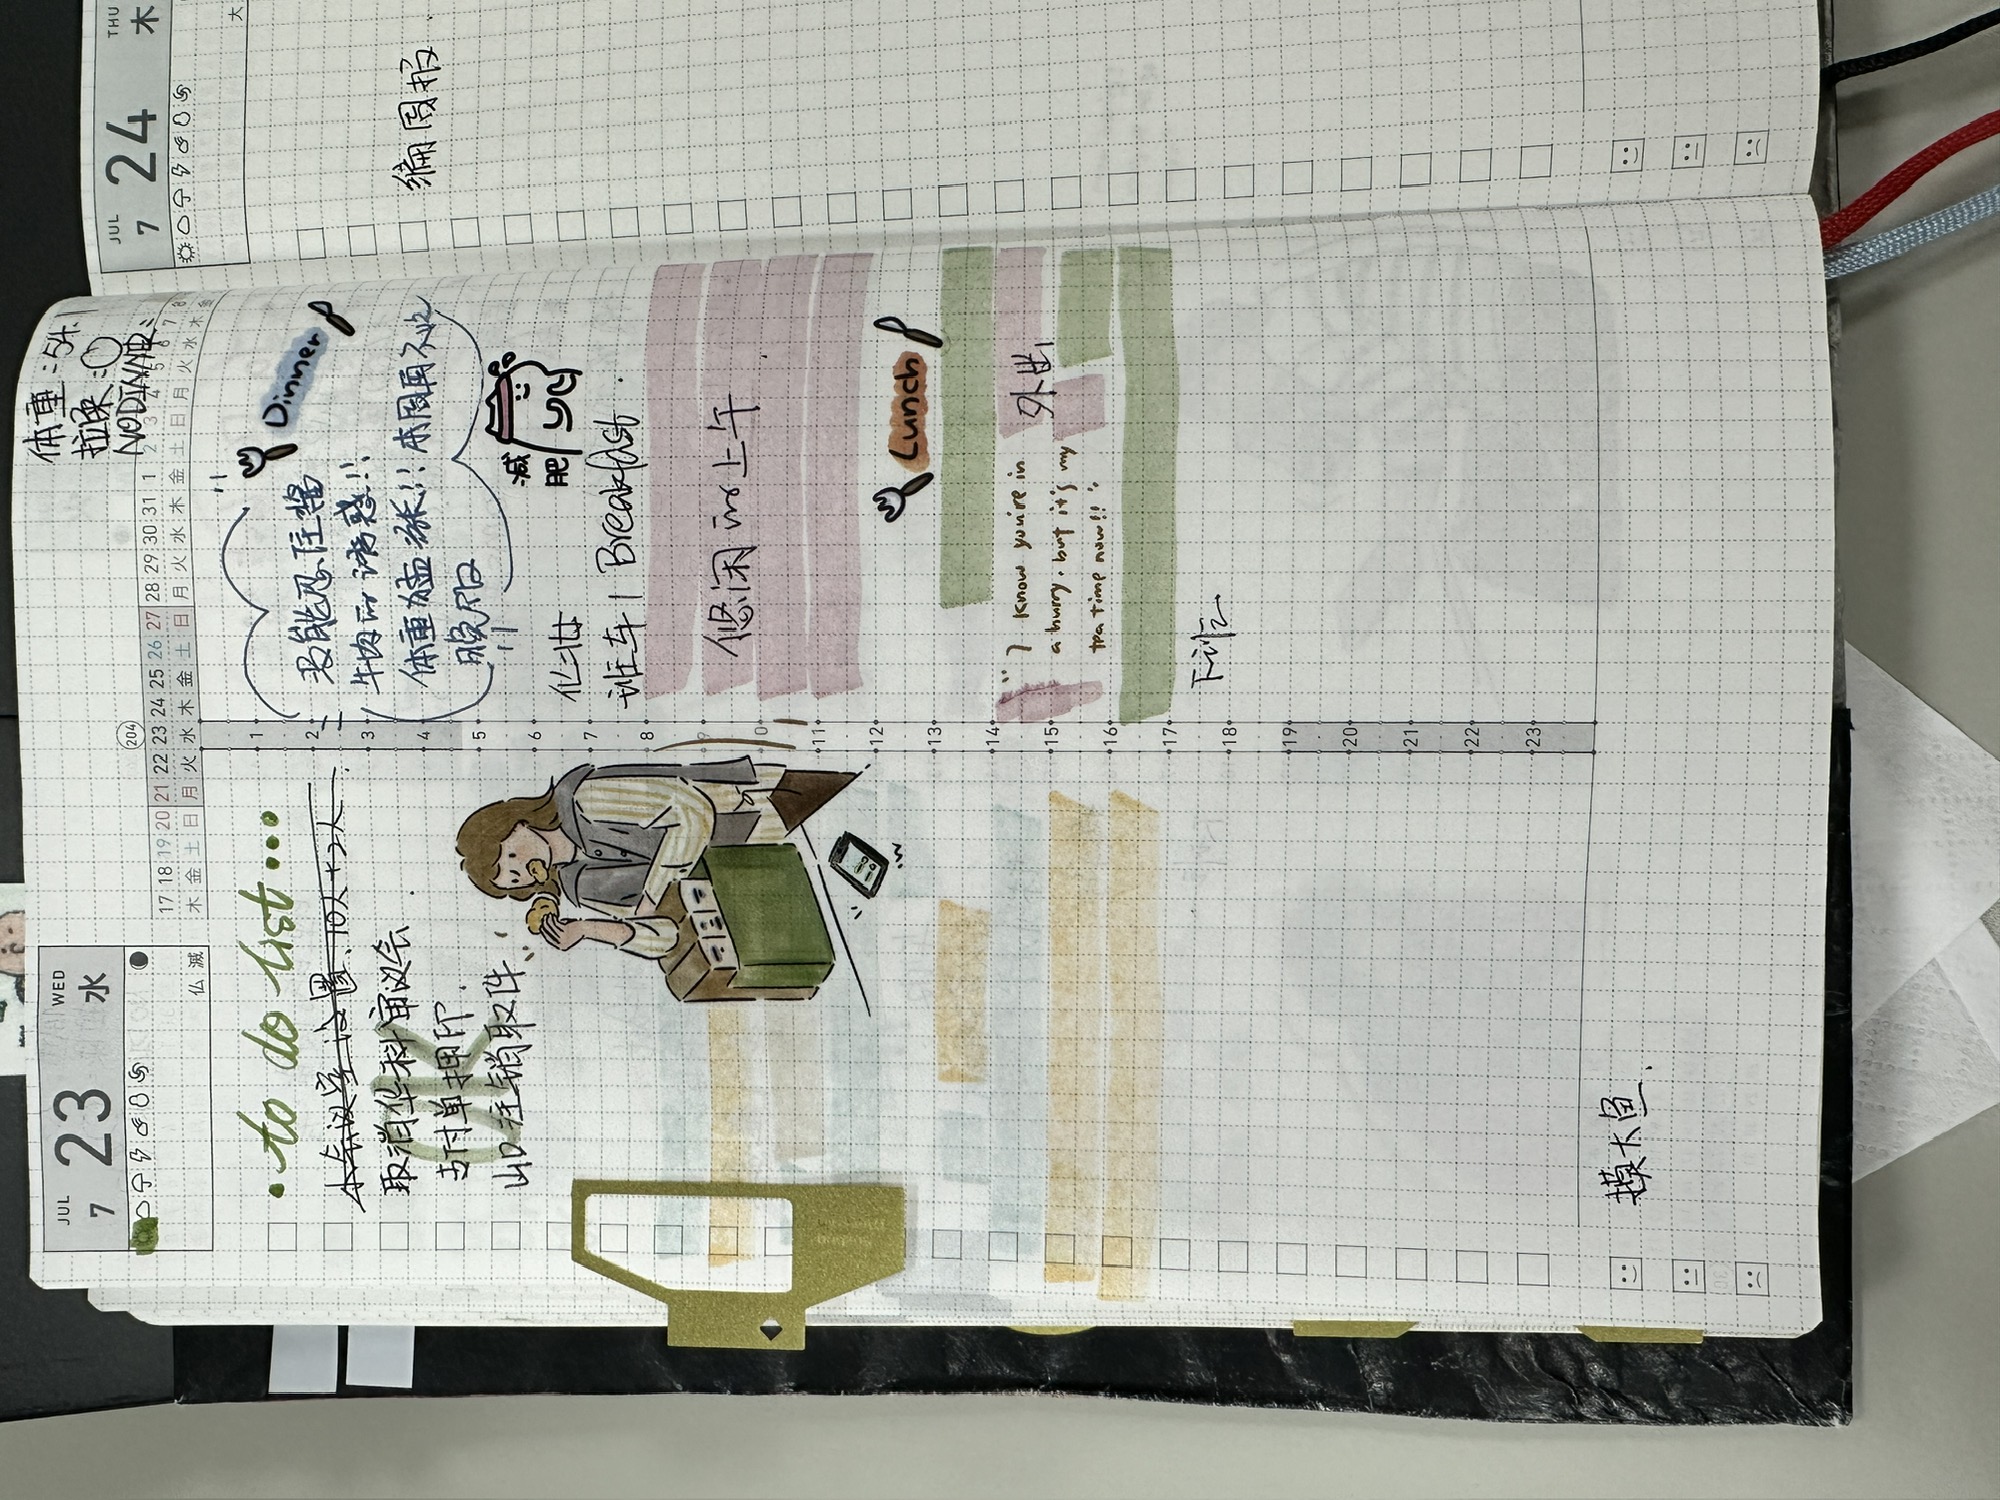 体重：54.
拉屎：○
NO DINNER：
JUL
7
23
WED
水
仏滅
204
17 18 19 20 21 22 23 24 25 26 27 28 29 30 31 1 2 3 4 5 6 7 8
木 金 土 日 月 火 水 木 金 土 日 月 火 水 木 金 土 日 月 火 水 木 金
to do list...
小会议室设置、10人+2人.
取消华科审议会.
支付单押印.
出口注销取件.
OK
Dinner
没能忍住酱
牛肉的诱惑!!!
体重为虚涨!!!本周再不吃
晚饭
减肥
化妆
班车 | Breakfast.
悠闲的上午
Lunch
外出!
I know you're in
a hurry, but it's my
tea time now!!
下班
1
2
3
4
5
6
7
8
9
10
11
12
13
14
15
16
17
18
19
20
21
22
23
摸大鱼.
JUL
7
24
THU
木
大
编周报